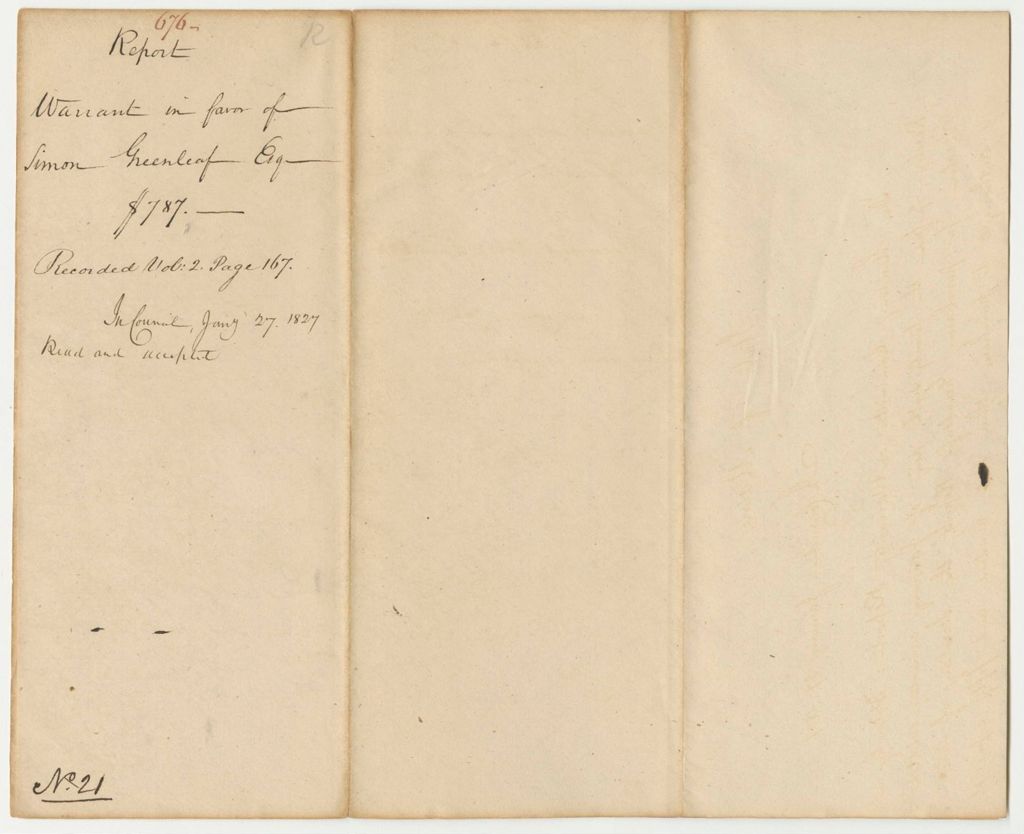 676-
R
Report
Warrant in favor of
Simon Greenleaf Esq
$787.—
Recorded Vol: 2. Page 167.
In Council, Jany 27. 1827
Read and accepted
No. 21